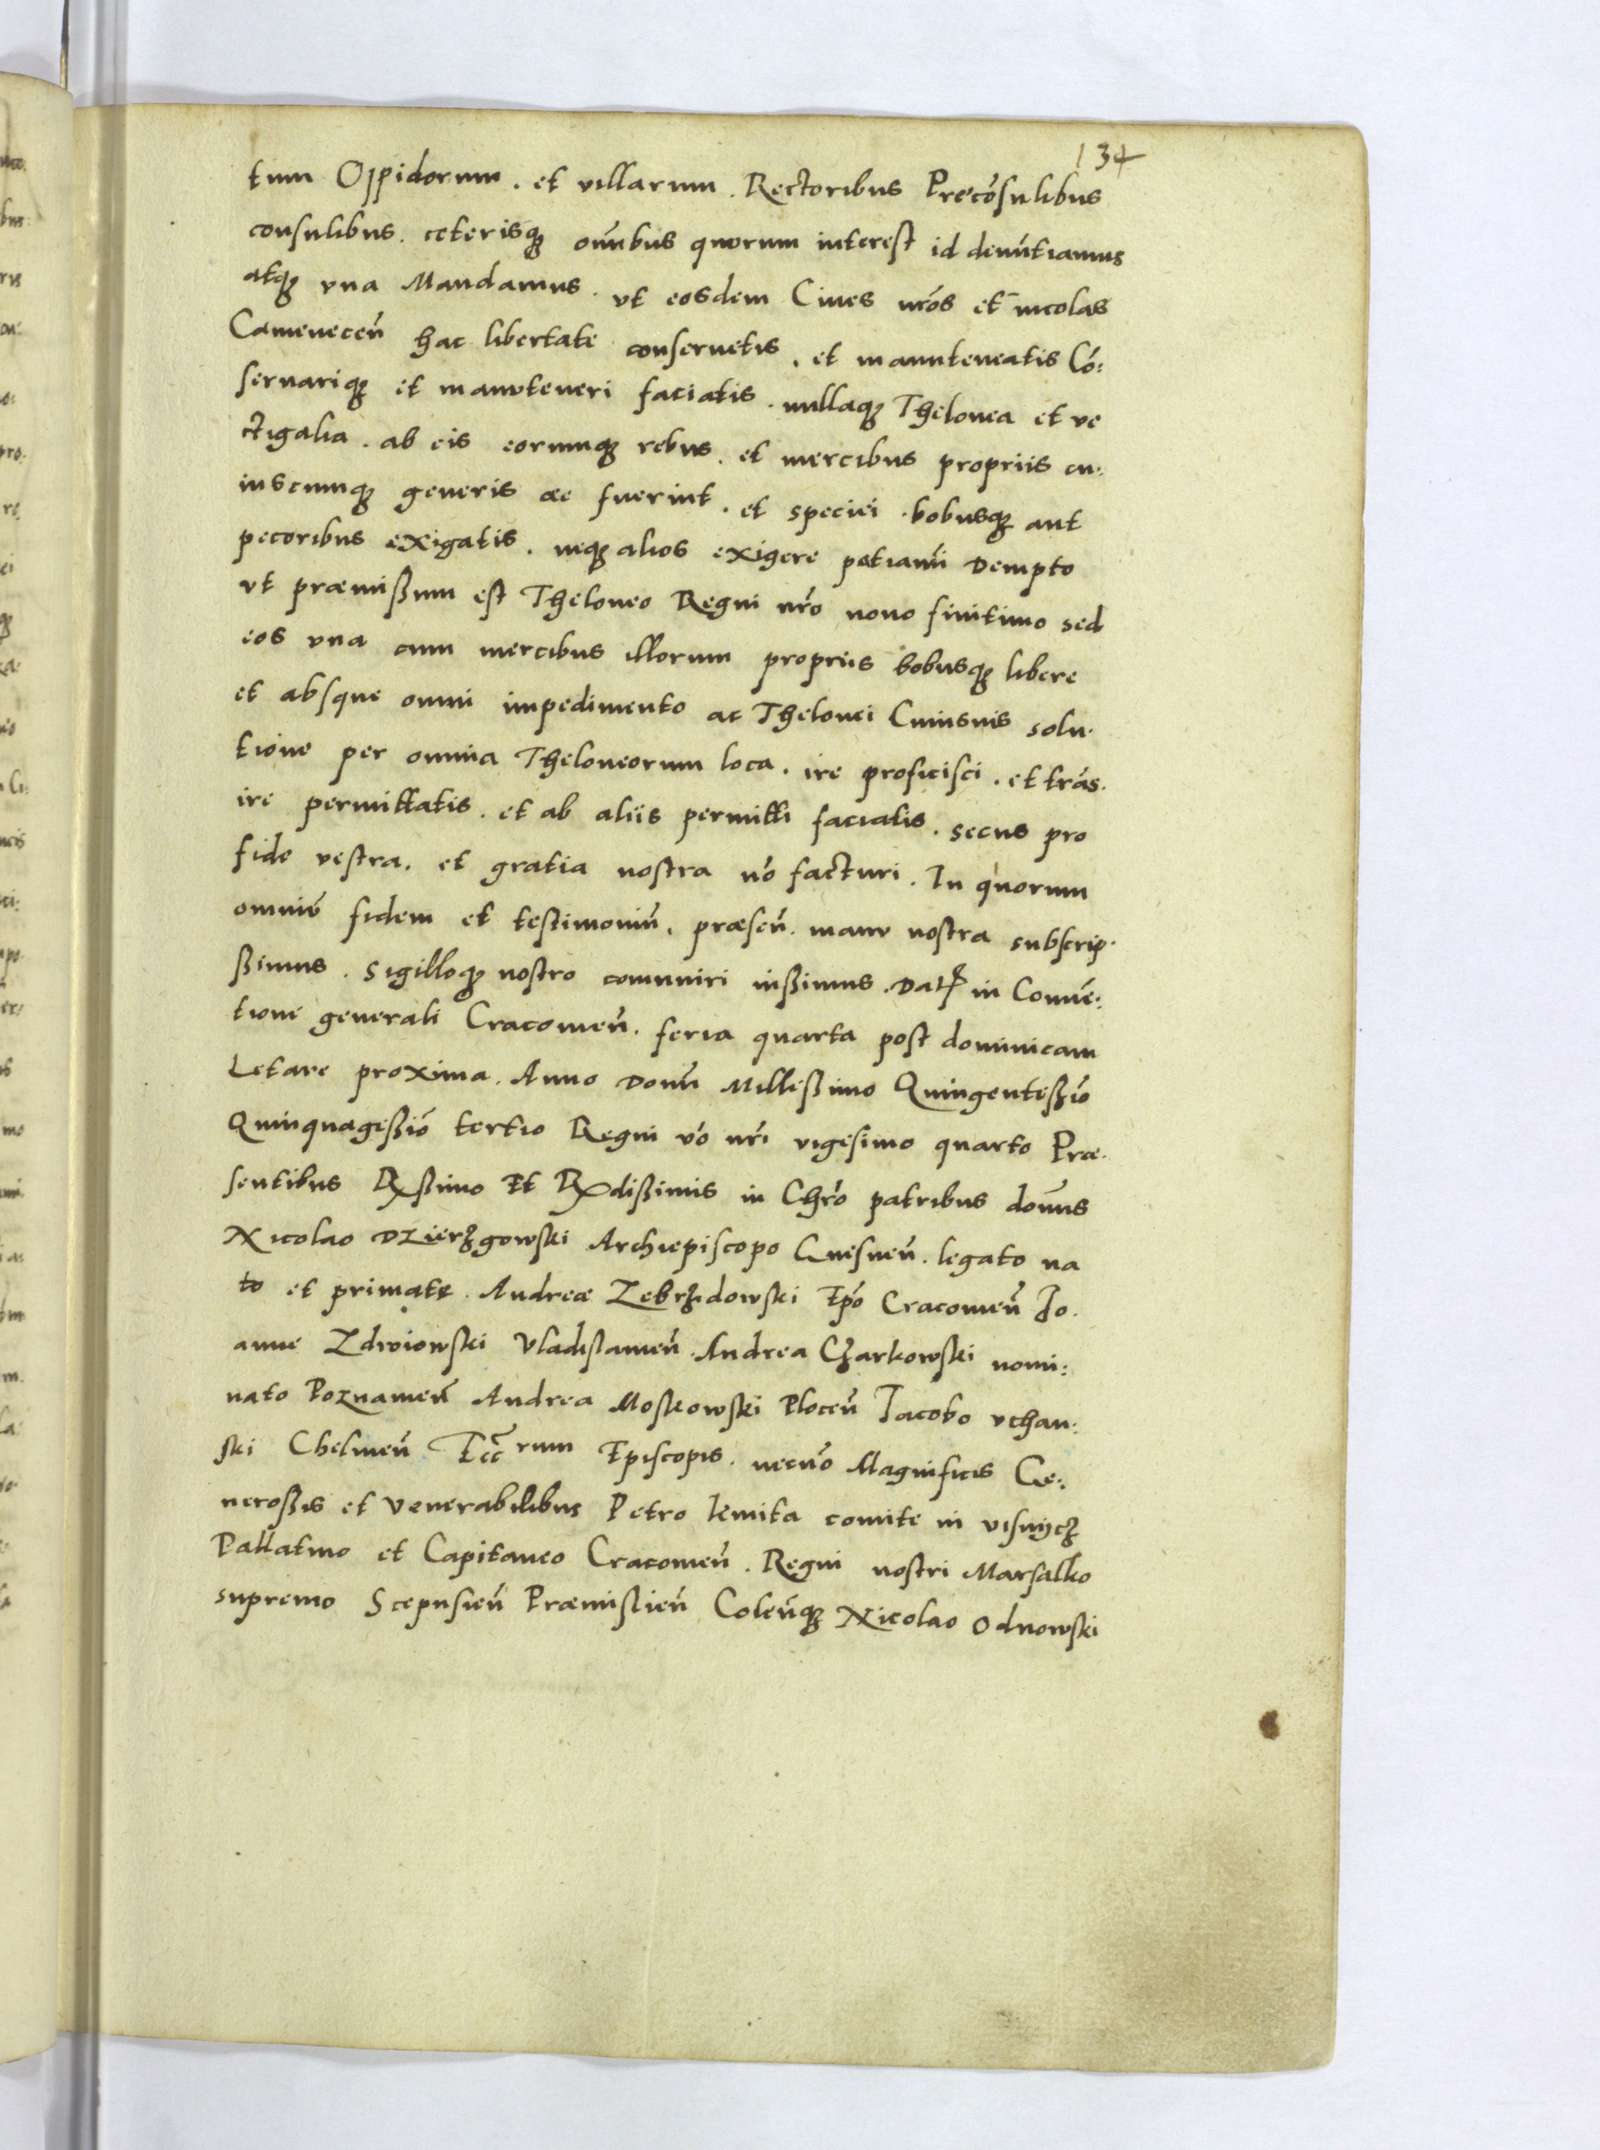 134
tum Oppidorum . et villarum . Rectoribus Precōsulibus
consulibus . ceterisq̃ om̃ibus quorum interest id denūtiamus
atq̃ vna Mandamus . vt eosdem Ciues nr̃os et incolas
Camenecen̄ hac libertate conseruetis . et manuteneatis Cō:
seruariq̃ et manuteneri faciatis . nullaq̃ Thelonea et ve
ctigalia . ab eis eorumq̃ rebus . et mercibus propriis cu:
iuscumq̃ generis ac fuerint . et speciei . bobusq̃ aut
pecoribus exigatis . neq̃ alios exigere patiamĩ Dempto
vt præmißum est Theloneo Regni nr̃o nouo finitimo sed
eos vna cum mercibus illorum propriis bobusq̃ libere
et absque omni impedimento ac Thelonei Cuiusuis solu.
tione per omnia Theloneorum loca . ire proficisci . et trās.
ire permittatis . et ab aliis permitti faciatis . secus pro
fide vestra . et gratia nostra nō facturi . In quorum
omniū fidem et testimoniū . præsen̄ . manu nostra subscrip.
ßimus . sigilloq̃ nostro comuniri iußimus . Dat̃ in Conuē:
tione generali Cracouien̄ . feria quarta post dominicam
Letare proxima . Anno Domĩ Milleßimo Quingenteßiō
Quinquageßiō tertio Regni vō nr̃i vigesimo quarto Præ.
sentibus Rx̃simo Et Rx̃dißimis in Chr̃o patribus domĩs
Nicolao Dzierzgowski Archiepiscopo Gnesnen̄ . legato na
to et primate . Andreæ Zebrzidowski Ep̄o Cracouien̄ Jo.
anne Zdroiowski Vladislauien̄ . Andrea Czarkowski nomi:
nato Poznanien̄ Andrea Moskowski Plocen̄ Jacobo vchan:
ski Chelmen̄ Ecc̄rum Episcopis . necnō Magnificis Ge:
neroßis et Venerabilibus Petro kmita comite in visnijcz
Pallatino et Capitaneo Cracouien̄ . Regni nostri Marsalko
supremo Scepusien̄ Præmislien̄ Colen̄q̃ Nicolao Odnowski